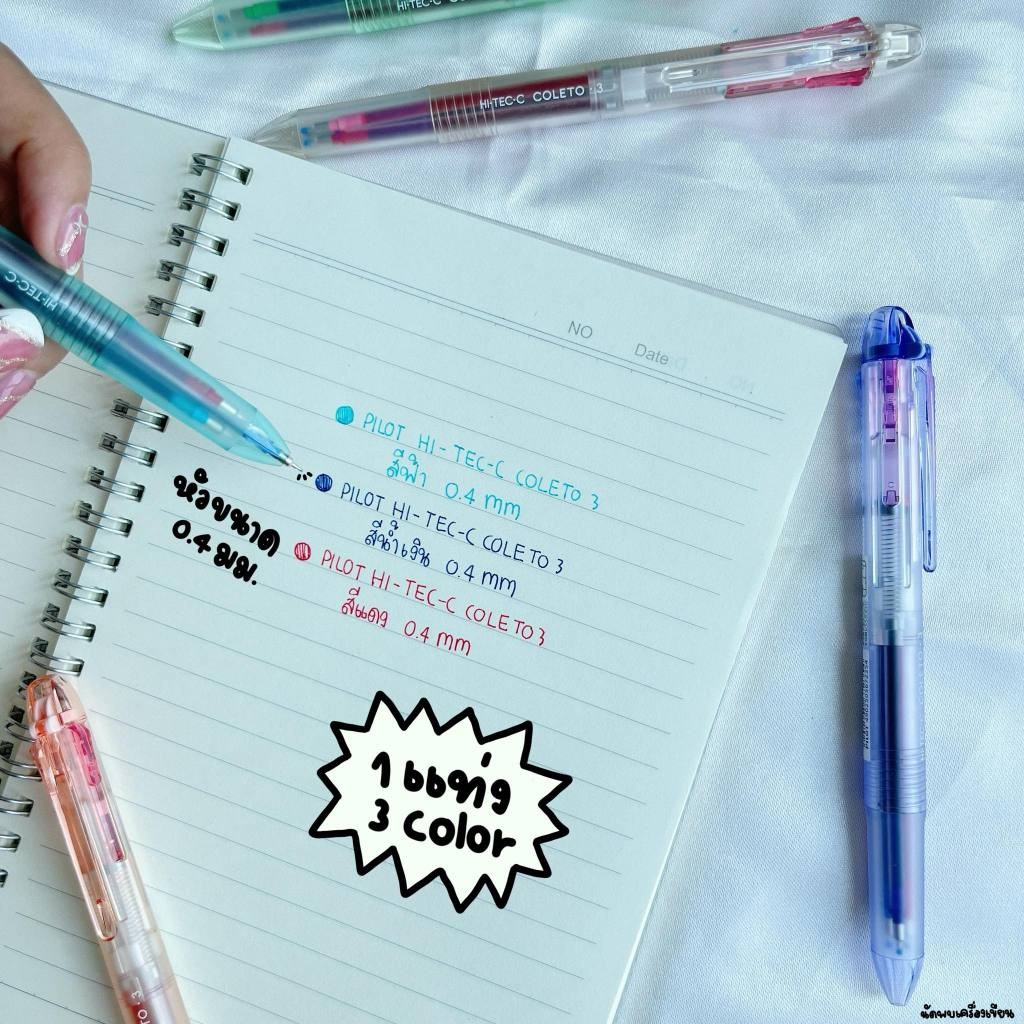 HI-TEC-C
HI-TEC-C COLETO 3
HI-TEC-C
NO
Date
PILOT HI-TEC-C COLETO 3
สีฟ้า 0.4 mm
PILOT HI-TEC-C COLETO 3
สีน้ำเงิน 0.4 mm
PILOT HI-TEC-C COLETO 3
สีแดง 0.4 mm
หัวขนาด
0.4 มม.
1 แท่ง
3 color
นัดพบเครื่องเขียน